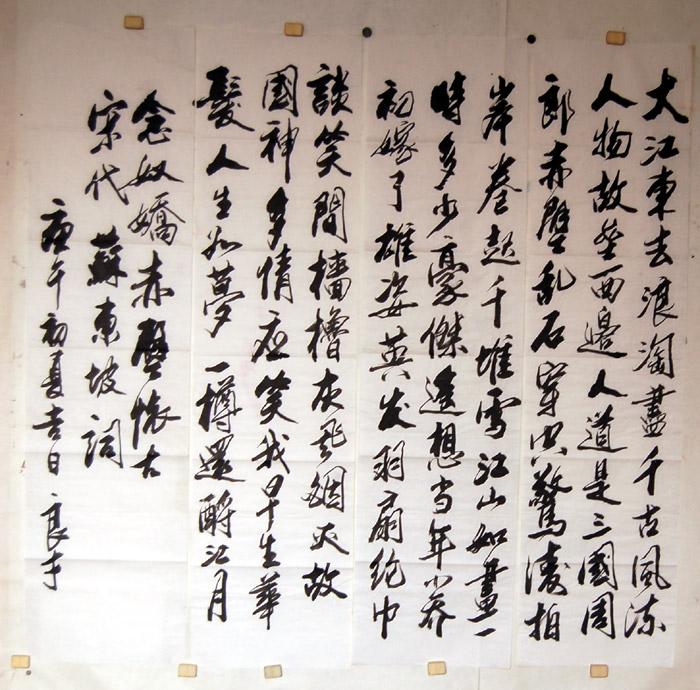 大江東去浪淘盡千古風流
人物故壘西邊人道是三國周
郎赤壁乱石穿空驚濤拍
岸卷起千堆雪江山如畫一
時多少豪傑遙想当年小乔
初嫁了雄姿英发羽扇纶巾
談笑間檣櫓灰飛烟灭故
國神多情应笑我早生華
髮人生如夢一樽還酹江月
念奴嬌赤壁懷古
宋代蘇東坡詞
庚午初夏吉日